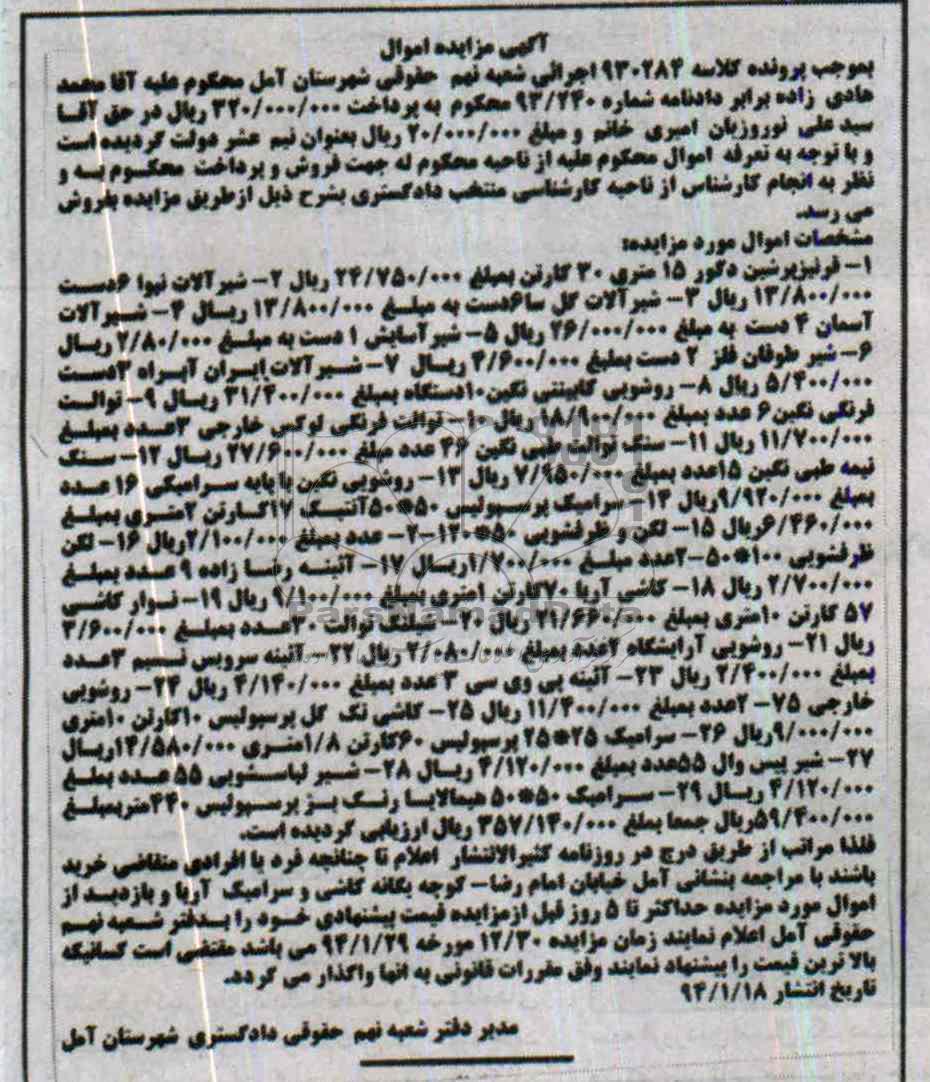 آگهی مزایده اموال
بموجب پرونده کلاسه ۹۳۰۲۸۴ اجرائی شعبه نهم حقوقی شهرستان آمل محکوم علیه آقا محمد
هادی زاده برابر دادنامه شماره ۹۳/۲۴۰ محکوم به پرداخت ۳۲۰/۰۰۰/۰۰۰ ریال در حق آقا
سید علی نوروزیان امیری خانم و مبلغ ۲۰/۰۰۰/۰۰۰ ریال بعنوان نیم عشر دولت گردیده است
و با توجه به تعرفه اموال محکوم علیه از ناحیه محکوم له جهت فروش و پرداخت محکوم به و
نظر به انجام کارشناس از ناحیه کارشناسی منتخب دادگستری بشرح ذیل ازطریق مزایده بفروش
می رسد.
مشخصات اموال مورد مزایده:
۱- قرنیزپرشین دکور ۱۵ متری ۳۰ کارتن بمبلغ ۲۴/۷۵۰/۰۰۰ ریال ۲- شیرآلات نیوا ۶دست
۱۳/۸۰۰/۰۰۰ ریال ۳- شیرآلات گل سا۶دست به مبلغ ۱۳/۸۰۰/۰۰۰ ریال ۴- شیرآلات
آسمان ۴ دست به مبلغ ۲۶/۰۰۰/۰۰۰ ریال ۵- شیرآسایش ۱ دست به مبلغ ۲/۸۰/۰۰۰ ریال
۶- شیر طوفان فلز ۲ دست بملیغ ۴/۶۰۰/۰۰۰ ریال ۷- شیرآلات ایران آبراه ۳دست
۵/۴۰۰/۰۰۰ ریال ۸- روشویی کابینتی نگین۱۰دستگاه بمبلغ ۳۱/۴۰۰/۰۰۰ ریال ۹- توالت
فرنگی نگین۶ عدد بمبلغ ۱۸/۹۰۰/۰۰۰ریال ۱۰- توالت فرنگی لوکس خارجی ۳عدد بمبلغ
۱۱/۷۰۰/۰۰۰ ریال ۱۱- سنگ توالت طبی نگین ۴۶ عدد مبلغ ۲۷/۶۰۰/۰۰۰ ریال ۱۲- سنگ
نیمه طبی نگین ۱۵عدد بمبلغ ۷/۹۵۰/۰۰۰ ریال ۱۳- روشویی نگین با پایه سرامیکی ۱۶ عدد
بمبلغ ۹/۹۲۰/۰۰۰ریال ۱۴- سرامیک پرسپولیس ۵۰*۵۰آنتیک ۱۷کارتن ۲متری بمبلغ
۶/۴۶۰/۰۰۰ریال ۱۵- لگن و ظرفشویی ۵۰*۱۲۰-۲- عدد بمبلغ ۲/۱۰۰/۰۰۰ریال ۱۶- لگن
ظرفشویی ۱۰۰*۵۰-۲عدد مبلغ ۱/۷۰۰/۰۰۰ریال ۱۷- آئینه رضا زاده ۹ عدد بمبلغ
۲/۷۰۰/۰۰۰ ریال ۱۸- کاشی آریا ۷۰کارتن ۱متری بمبلغ ۹/۱۰۰/۰۰۰ ریال ۱۹- نوار کاشی
۵۷ کارتن ۱۰متری بمبلغ ۲۱/۶۶۰/۰۰۰ ریال ۲۰- شیلنگ توالت ۳۰عدد بمبلغ ۳/۶۰۰/۰۰۰
ریال ۲۱- روشویی آرایشگاه ۲عدد بمبلغ ۲/۰۸۰/۰۰۰ ریال ۲۲- آئینه سرویس نسیم ۳عدد
بمبلغ ۲/۴۰۰/۰۰۰ ریال ۲۳- آئینه پی وی سی ۳ عدد بمبلغ ۴/۱۴۰/۰۰۰ ریال ۲۴- روشویی
خارجی ۷۵- ۲عدد بمبلغ ۱۱/۴۰۰/۰۰۰ ریال ۲۵- کاشی تک گل پرسپولیس ۱۰کارتن ۱۰متری
۹/۰۰۰/۰۰۰ریال ۲۶- سرامیک ۲۵*۲۵ پرسپولیس ۶۰کارتن ۱/۸متری ۱۴/۵۸۰/۰۰۰ریال
۲۷- شیر پیس وال ۵۵عدد بمبلغ ۴/۱۲۰/۰۰۰ ریال ۲۸- شیر لباسشویی ۵۵ عدد بملغ
۴/۱۲۰/۰۰۰ ریال ۲۹- سرامیک ۵۰*۵۰ هیمالایا رنگ بژ پرسپولیس ۴۴۰متربمبلغ
۵۹/۴۰۰/۰۰۰ریال جمعا بملغ ۳۵۷/۱۴۰/۰۰۰ ریال ارزیابی گردیده است.
فلذا مراتب از طریق درج در روزنامه کثیرالانتشار اعلام تا چنانچه فرد یا افرادی متقاضی خرید
باشند با مراجعه بنشانی آمل خیابان امام رضا- کوچه یگانه کاشی و سرامیک آریا و بازدید از
اموال مورد مزایده حداکثر تا ۵ روز قبل ازمزایده قیمت پیشنهادی خود را بدفتر شعبه نهم
حقوقی آمل اعلام نمایند زمان مزایده ۱۲/۳۰ مورخه ۹۴/۱/۲۹ می باشد مقتضی است کسانیکه
بالا ترین قیمت را پیشنهاد نمایند وفق مقررات قانونی به انها واگذار می گردد.
تاریخ انتشار ۹۴/۱/۱۸
مدیر دفتر شعبه نهم حقوقی دادگستری شهرستان آمل
ParsNamadData